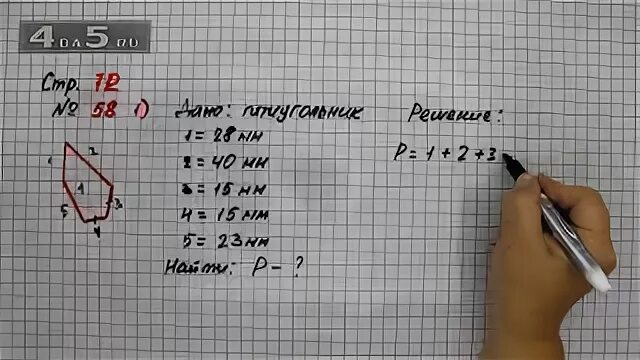 4 ДЛЯ 5 RU
Стр. 72
№ 58 1)
Дано: пятиугольник
1 = 28 мм
2 = 40 мм
3 = 15 мм
4 = 15 мм
5 = 23 мм
Найти: P - ?
Решение:
P = 1 + 2 + 3
1 2
1
5 3
4